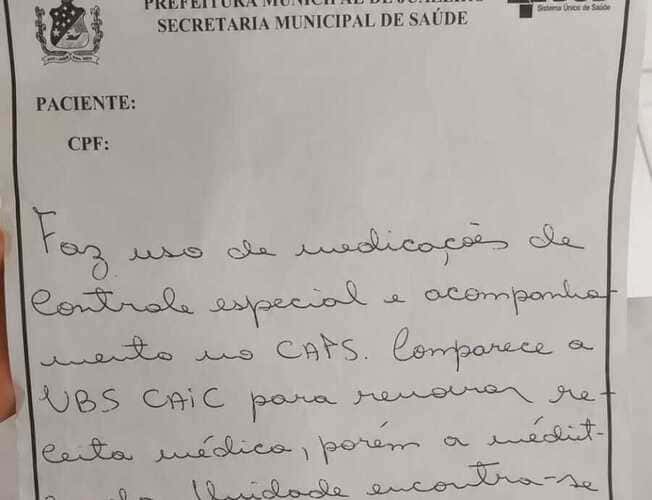 PREFEITURA MUNICIPAL DE JUAZEIRO
SECRETARIA MUNICIPAL DE SAÚDE
Sistema Único de Saúde
PACIENTE:
CPF:
Faz uso de medicações de
controle especial e acompanha-
mento no CAPS. Comparece a
UBS CAIC para renovar re-
ceita médica, porém a
Unidade encontra-se